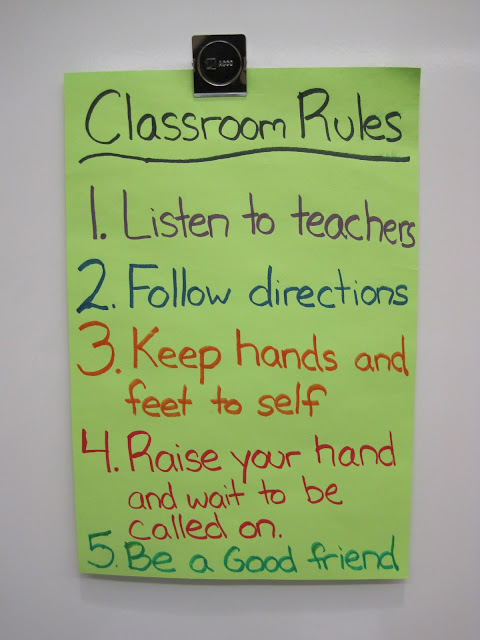 ACCO
Classroom Rules
1. Listen to teachers
2. Follow directions
3. Keep hands and
feet to self
4. Raise your hand
and wait to be
called on.
5. Be a Good friend